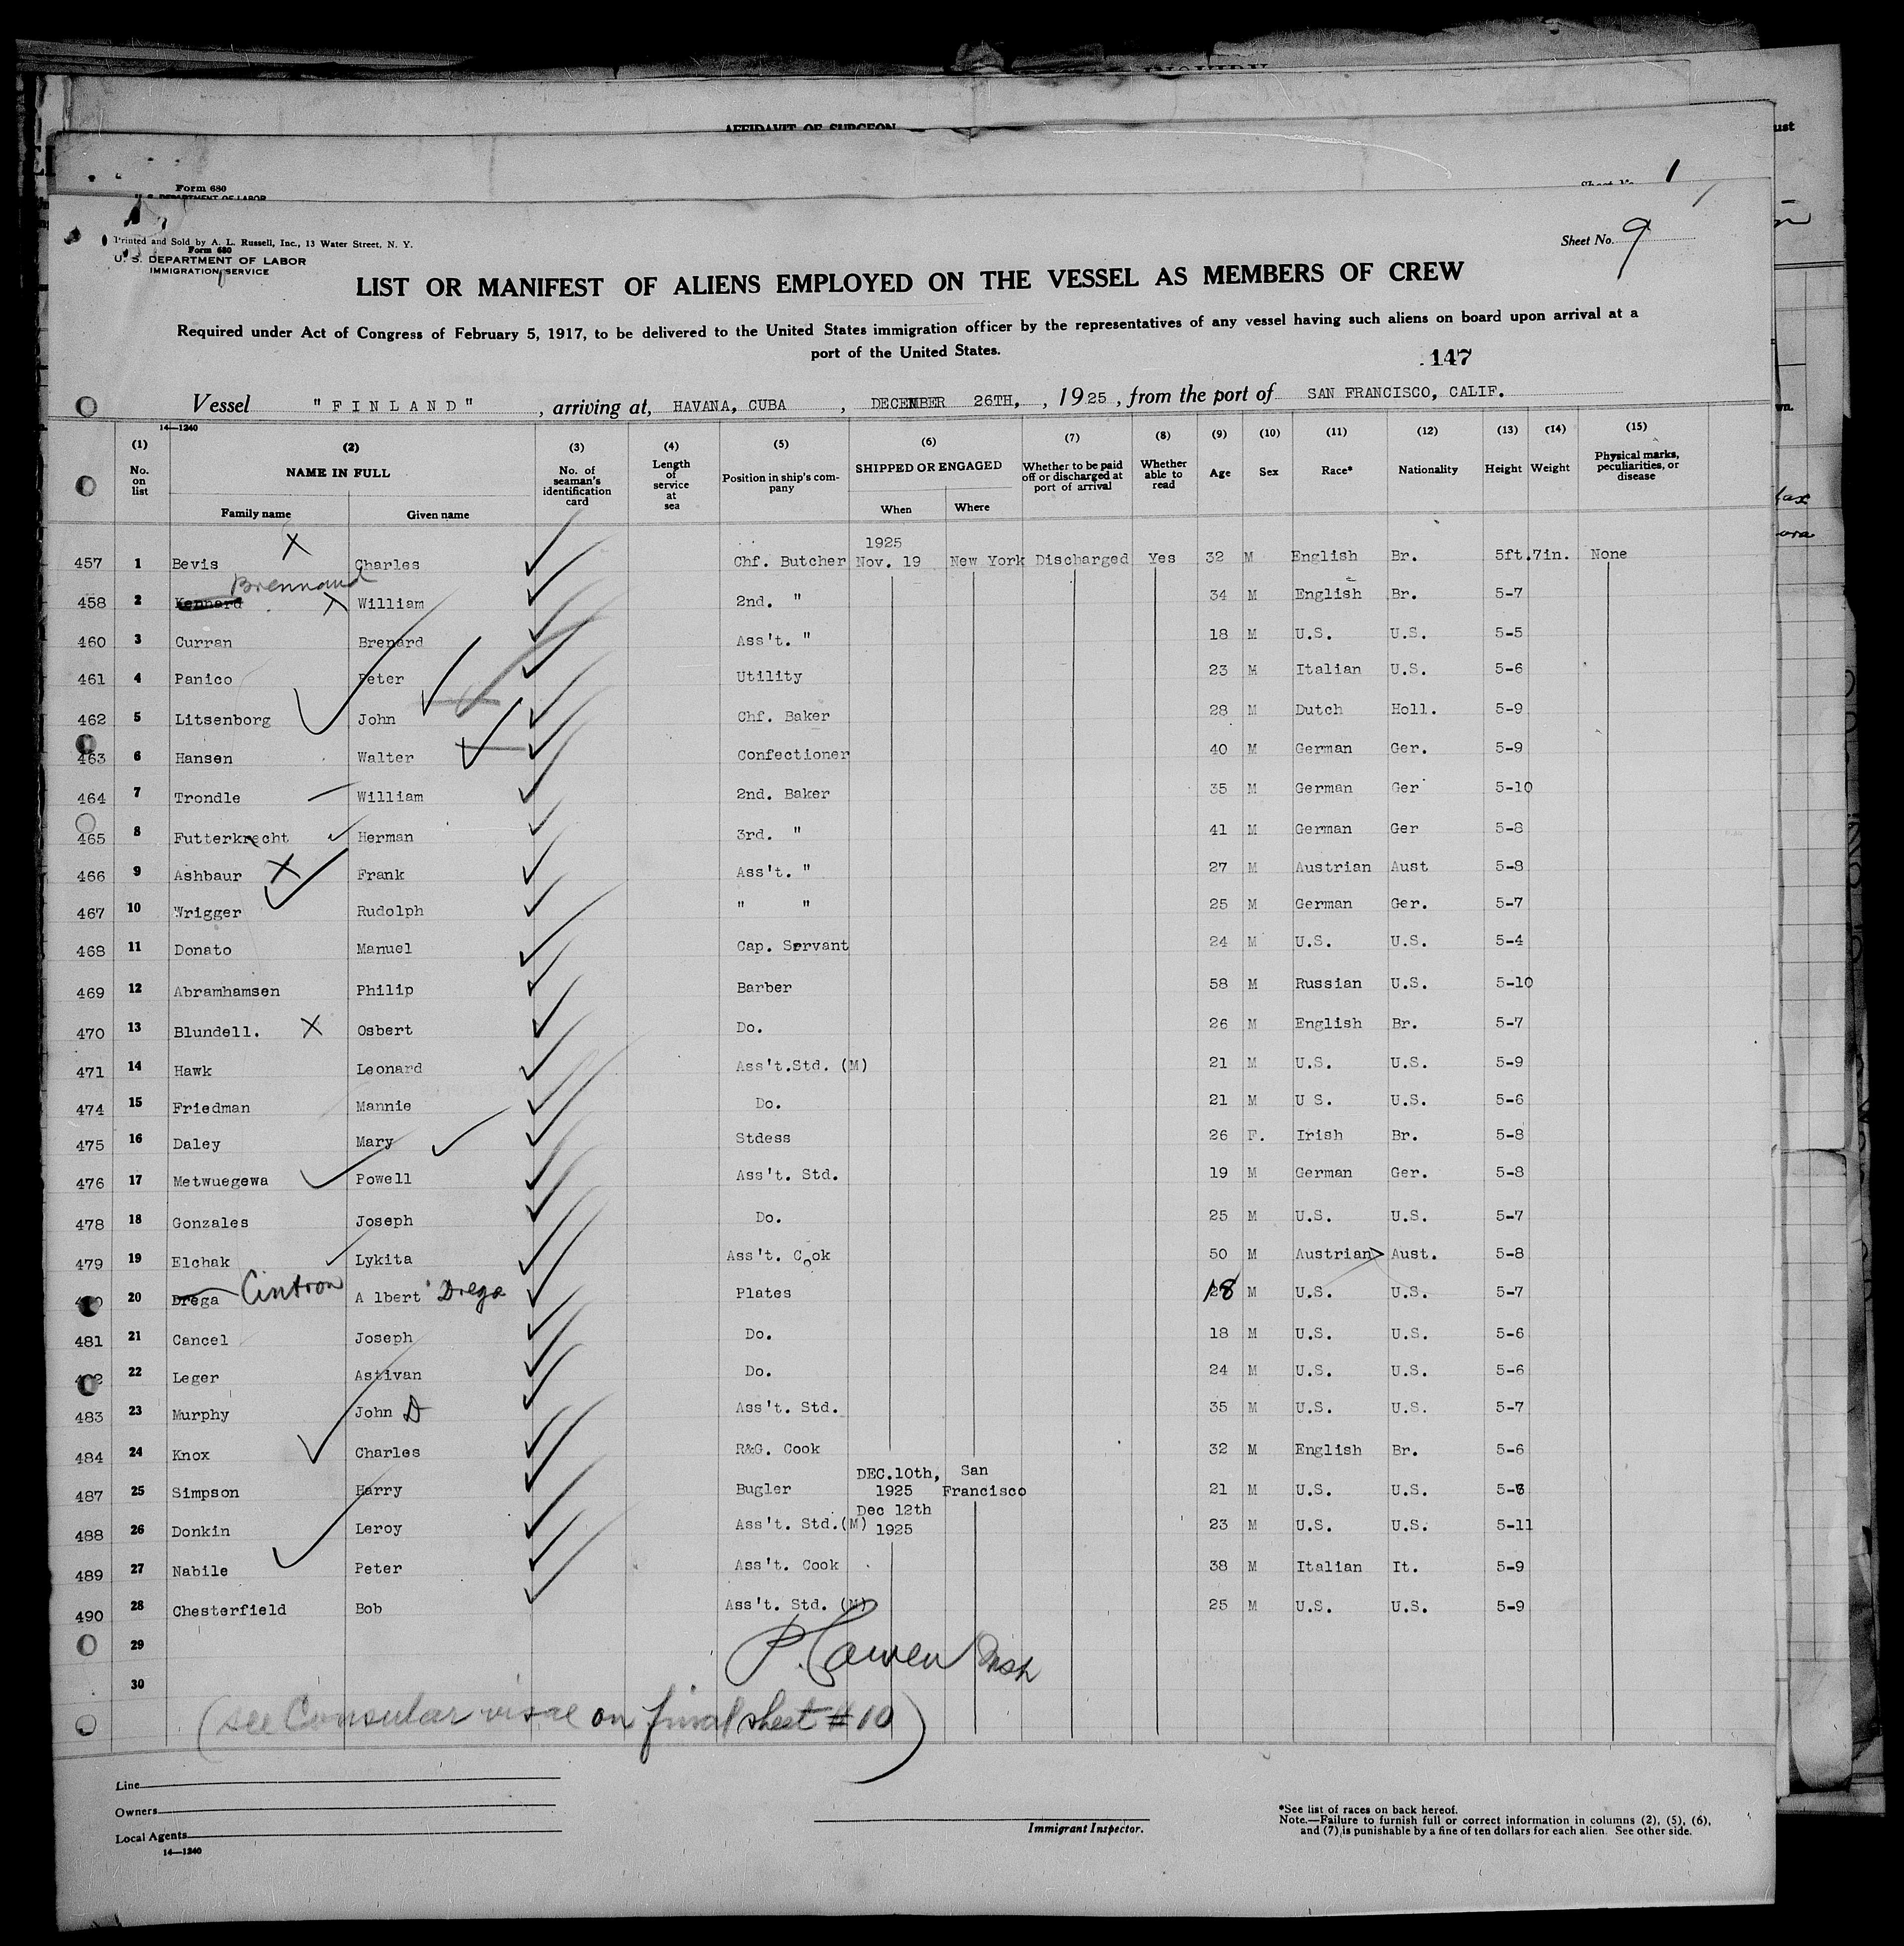 INQUIRY
AFFIDAVIT OF SURGEON
Form 680
U. S. DEPARTMENT OF LABOR
Sheet No. 1
Printed and Sold by A. L. Russell, Inc., 13 Water Street, N. Y.
Form 680
U. S. DEPARTMENT OF LABOR
IMMIGRATION SERVICE
Sheet No. 9
LIST OR MANIFEST OF ALIENS EMPLOYED ON THE VESSEL AS MEMBERS OF CREW
Required under Act of Congress of February 5, 1917, to be delivered to the United States immigration officer by the representatives of any vessel having such aliens on board upon arrival at a
port of the United States.
147
Vessel "FINLAND", arriving at, HAVANA, CUBA, DECEMBER 26TH,, 1925, from the port of SAN FRANCISCO, CALIF.
14—1240
(1) (2) (3) (4) (5) (6) (7) (8) (9) (10) (11) (12) (13) (14) (15)
No. on list NAME IN FULL No. of seaman's identification card Length of service at sea Position in ship's company SHIPPED OR ENGAGED Whether to be paid off or discharged at port of arrival Whether able to read Age Sex Race* Nationality Height Weight Physical marks, peculiarities, or disease
Family name Given name When Where
1925
457 1 Bevis X Charles Chf. Butcher Nov. 19 New York Discharged Yes 32 M English Br. 5ft.7in. None
Brennand
458 2 Kennard X William 2nd. " 34 M English Br. 5-7
460 3 Curran Brenard Ass't. " 18 M U.S. U.S. 5-5
461 4 Panico Peter Utility 23 M Italian U.S. 5-6
462 5 Litsenborg John Chf. Baker 28 M Dutch Holl. 5-9
463 6 Hansen Walter Confectioner 40 M German Ger. 5-9
464 7 Trondle William 2nd. Baker 35 M German Ger 5-10
465 8 Futterkrecht Herman 3rd. " 41 M German Ger 5-8
466 9 Ashbaur X Frank Ass't. " 27 M Austrian Aust 5-8
467 10 Wrigger Rudolph " " 25 M German Ger. 5-7
468 11 Donato Manuel Cap. Servant 24 M U.S. U.S. 5-4
469 12 Abramhamsen Philip Barber 58 M Russian U.S. 5-10
470 13 Blundell. X Osbert Do. 26 M English Br. 5-7
471 14 Hawk Leonard Ass't.Std. (M) 21 M U.S. U.S. 5-9
474 15 Friedman Mannie Do. 21 M U S. U.S. 5-6
475 16 Daley Mary Stdess 26 F. Irish Br. 5-8
476 17 Metwuegewa Powell Ass't. Std. 19 M German Ger. 5-8
478 18 Gonzales Joseph Do. 25 M U.S. U.S. 5-7
479 19 Elchak Lykita Ass't. Cook 50 M Austrian Aust. 5-8
20 Drega Cintron A lbert Drega Plates 18 M U.S. U.S. 5-7
481 21 Cancel Joseph Do. 18 M U.S. U.S. 5-6
22 Leger Astivan Do. 24 M U.S. U.S. 5-6
483 23 Murphy John D Ass't. Std. 35 M U.S. U.S. 5-7
484 24 Knox Charles R&G. Cook 32 M English Br. 5-6
DEC.10th, San
487 25 Simpson Harry Bugler 1925 Francisco 21 M U.S. U.S.
Dec 12th
488 26 Donkin Leroy Ass't. Std.(M) 1925 23 M U.S. U.S. 5-11
489 27 Nabile Peter Ass't. Cook 38 M Italian It. 5-9
490 28 Chesterfield Bob Ass't. Std. (M) 25 M U.S. U.S. 5-9
29
P. Cowen Insp
30
(see Consular visae on final sheet #10)
Line
Owners
Local Agents
14—1240
Immigrant Inspector.
*See list of races on back hereof.
Note.—Failure to furnish full or correct information in columns (2), (5), (6),
and (7) is punishable by a fine of ten dollars for each alien. See other side.